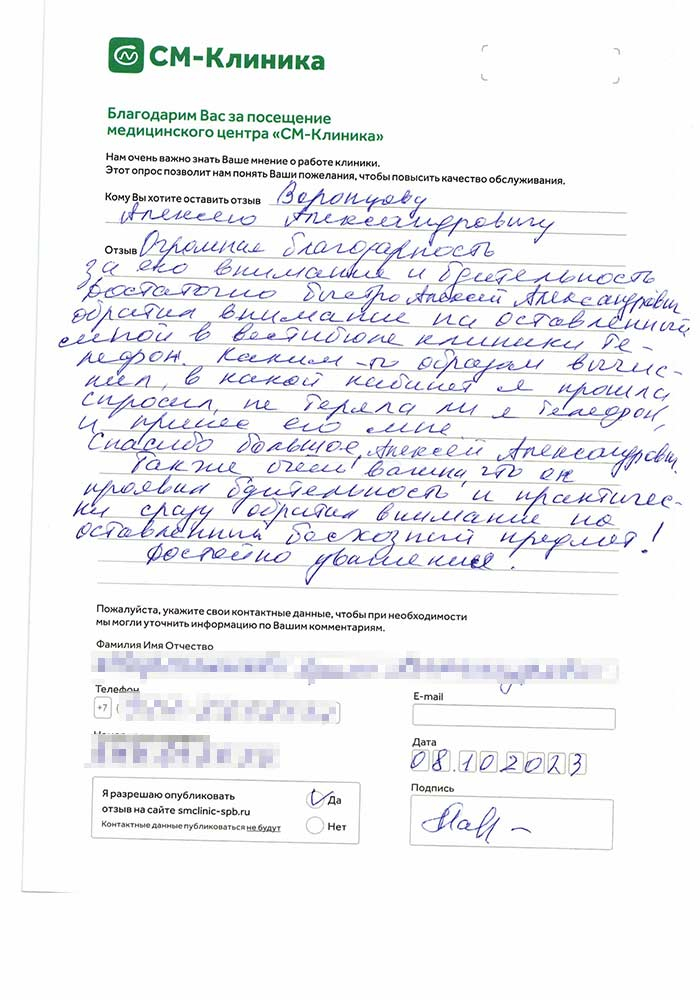 СМ-Клиника
Благодарим Вас за посещение
медицинского центра «СМ-Клиника»
Нам очень важно знать Ваше мнение о работе клиники.
Этот опрос позволит нам понять Ваши пожелания, чтобы повысить качество обслуживания.
Кому Вы хотите оставить отзыв Воронцову
Алексею Александровичу
Отзыв Огромная благодарность
за его внимание и бдительность
Достаточно быстро Алексей Александрович
обратил внимание на оставленный
мной в вестибюле клиники те-
лефон. Каким-то образом вычис-
лил, в какой кабинет я прошла
спросил, не теряла ли я телефон,
и принес его мне
Спасибо большое, Алексей Александрович.
Также очень важно, что он
проявил бдительность и практичес-
ки сразу обратил внимание на
оставленный бесхозный предмет!
Достойно уважения!
Пожалуйста, укажите свои контактные данные, чтобы при необходимости
мы могли уточнить информацию по Вашим комментариям.
Фамилия Имя Отчество
Телефон
+7 (
E-mail
Дата
08.10 2023
Подпись
Я разрешаю опубликовать
отзыв на сайте smclinic-spb.ru
Контактные данные публиковаться не будут
Да
Нет